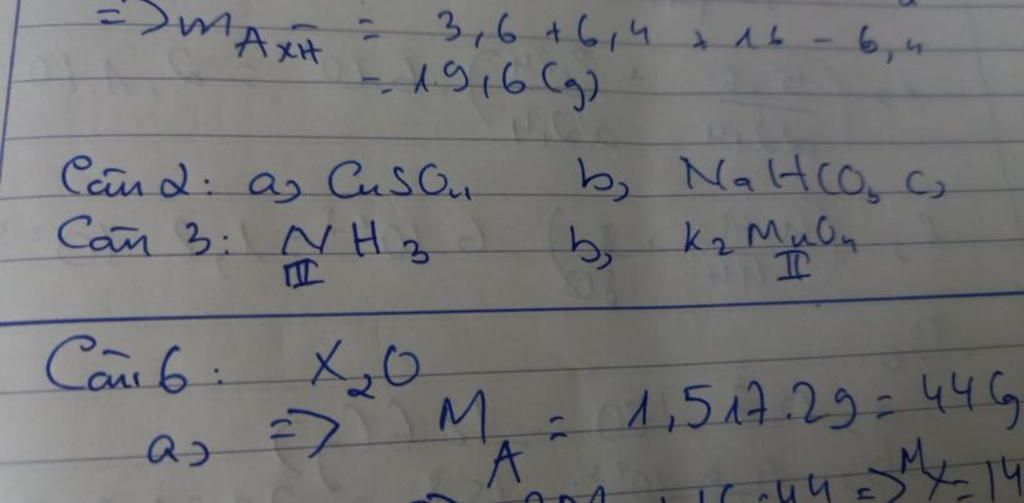 => m AxH = 3,6 + 6,4 + 16 - 6,4
= 19,6 (g)
Câu 2: a, CuSO4 b, NaHCO3 c,
Câu 3: NH3 b, K2MnO4
III II
Câu 6: X2O
a, => MA = 1,517.29 = 44 (g
44 => Mx = 14